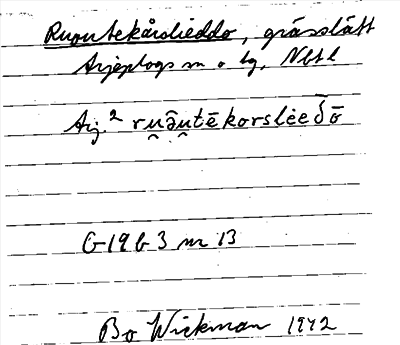 Ruoutekårslieddo, grässlått
Arjeplogs sn o tg, Nbtl
Arj.² ru̯ə̑u̯tēkorslėeδō
G19 b 3 nr 13
Bo Wickman 1942